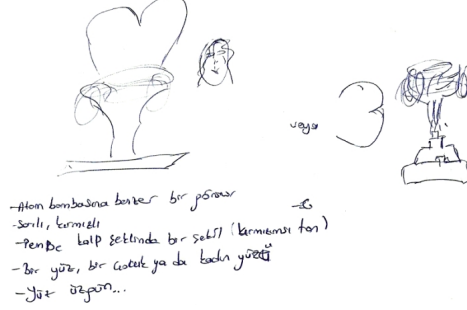 veya
-Atom bombasına benzer bir
-Sarılı, kırmızılı
-Pembe kalp şeklinde bir şekil (kırmızımsı ton)
-Bir yüz, bir çocuk ya da kadın yüzü
-Yüz üzgün...